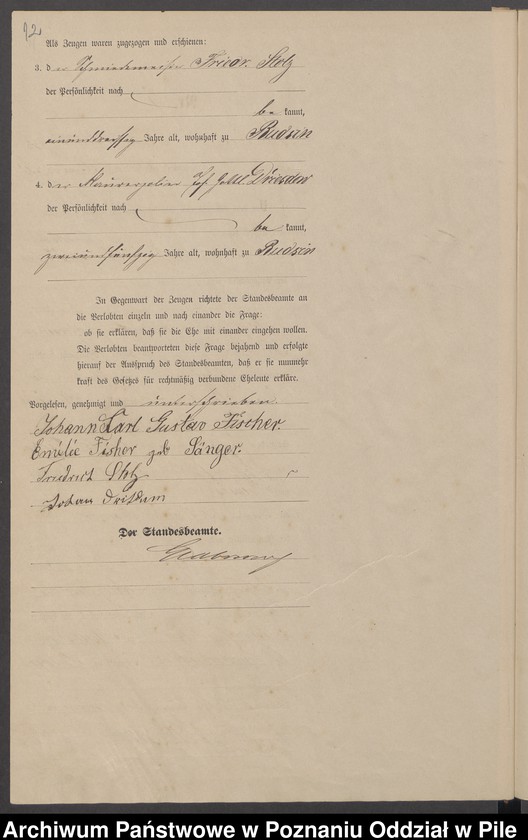 12
Als Zeugen waren zugezogen und erschienen:
3. der Schmiedemeister Friedr. Stolz
der Persönlichkeit nach
be kannt,
einunddreißig Jahre alt, wohnhaft zu Budsin
4. der Maurergeselle Joh. Gottl. Dresdow
der Persönlichkeit nach
be kannt,
zweiundfünfzig Jahre alt, wohnhaft zu Budsin
In Gegenwart der Zeugen richtete der Standesbeamte an
die Verlobten einzeln und nach einander die Frage:
ob sie erklären, daß sie die Ehe mit einander eingehen wollen.
Die Verlobten beantworteten diese Frage bejahend und erfolgte
hierauf der Ausspruch des Standesbeamten, daß er sie nunmehr
kraft des Gesetzes für rechtmäßig verbundene Eheleute erkläre.
Vorgelesen, genehmigt und unterschrieben.
Johann Karl Gustav Fischer.
Emilie Fisher geb Sänger.
Friedrich Stolz
Der Standesbeamte.
Archiwum Państwowe w Poznaniu Oddział w Pile